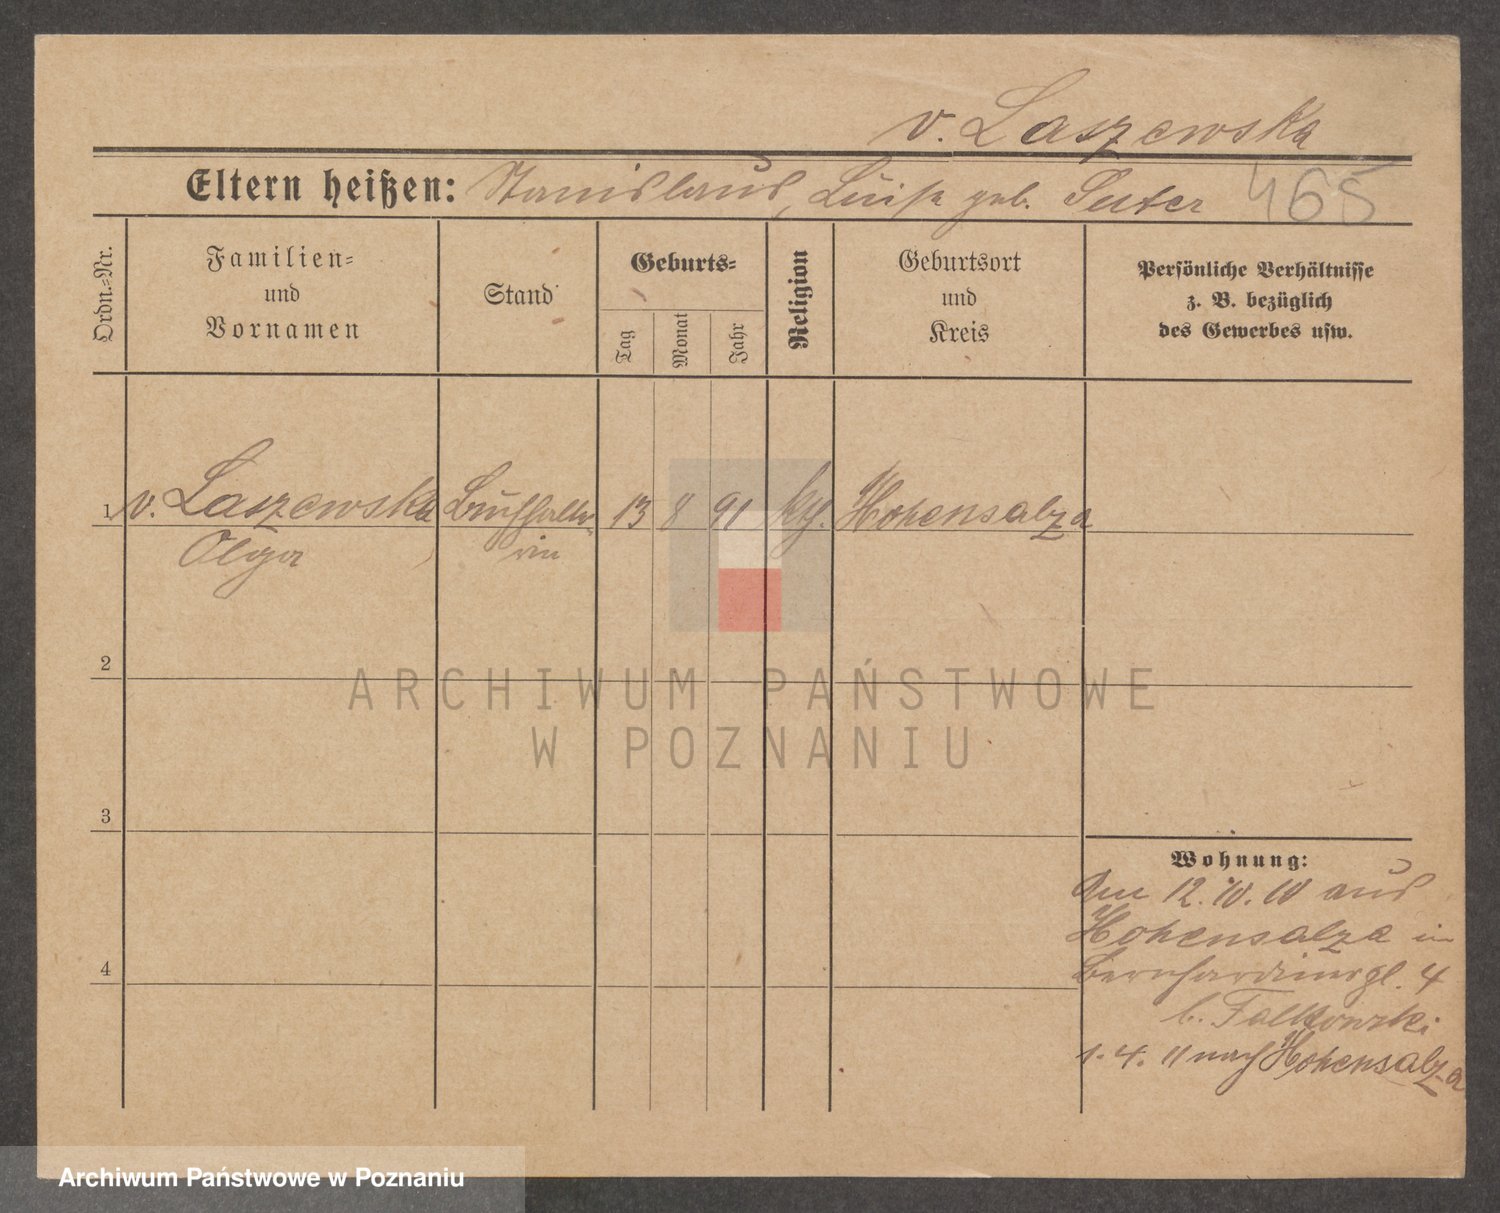 v. Laszewska
Eltern heißen: Stanislaus, Luise geb. Suter 465
Ordn.-Nr.
Familien-
und
Vornamen
Stand
Geburts-
Tag
Monat
Jahr
Religion
Geburtsort
und
Kreis
Persönliche Verhältnisse
z. B. bezüglich
des Gewerbes usw.
1 v. Laszewska Buchhalte- 13 8 91 kth. Hohensalza
Olga rin
2
3
4
Wohnung:
Am 12.10.10 aus
Hohensalza in
Bernhardinerpl. 4
b. Falkowski
1.4.11 nach Hohensalza
ARCHIWUM PAŃSTWOWE
W POZNANIU
Archiwum Państwowe w Poznaniu